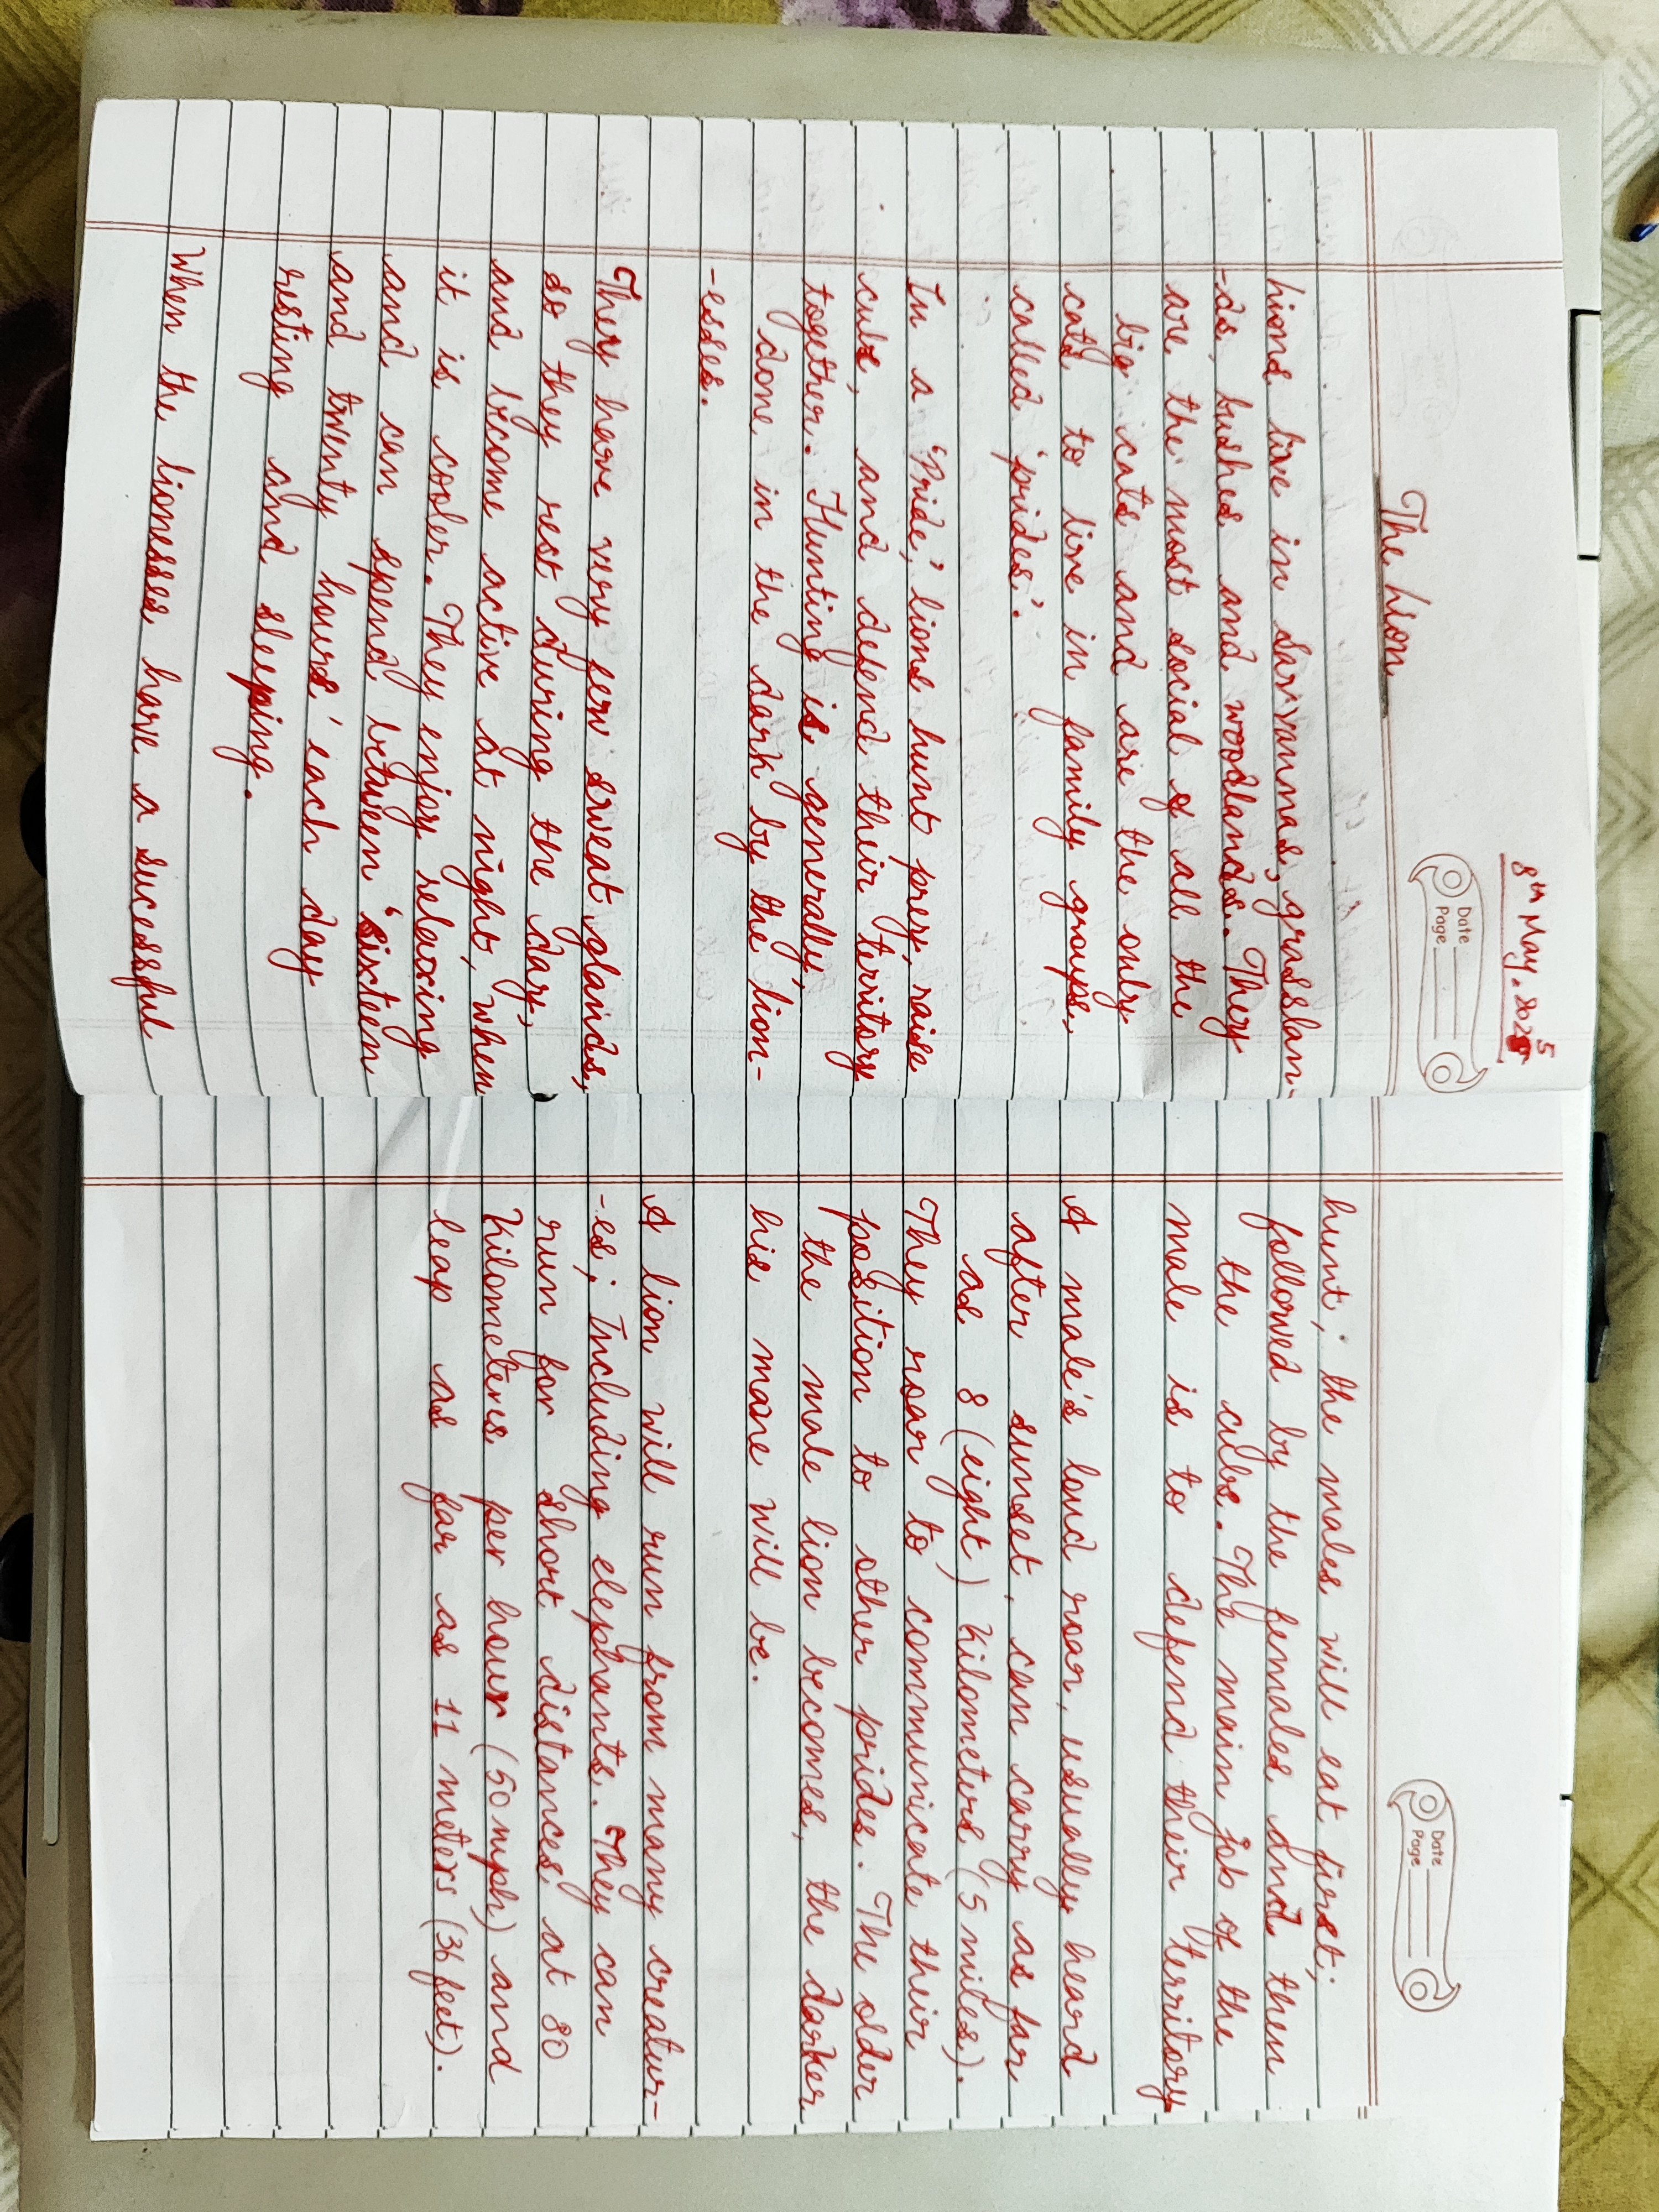 8th May, 2025
Date
Page
The Lion
Lions live in savannas, grasslan-
-ds, bushes and woodlands. They
are the most social of all the
big cats and are the only
cats to live in family groups,
called 'prides'.
In a 'Pride', lions hunt prey, raise
cubs, and defend their territory
together. Hunting is generally,
done in the dark by the lion-
-esses.
They have very few sweat glands,
so they rest during the day,
and become active at night, when
it is cooler. They enjoy relaxing
and can spend between 'sixteen
and twenty hours' each day
resting and sleeping.
When the lionesses have a sucessful
Date
Page
hunt; the males will eat first;
followed by the females and then
the cubs. The main job of the
male is to defend their territory
A male's loud roar, usually heard
after sunset, can carry as far
as 8 (eight) Kilometers (5 miles).
They roar to communicate their
position to other prides. The older
the male lion becomes, the darker
his mane will be.
A lion will run from many creatur-
-es; Including elephants. They can
run for short distances at 80
Kilometers per hour (50 mph) and
leap as far as 11 meters (36 feet).